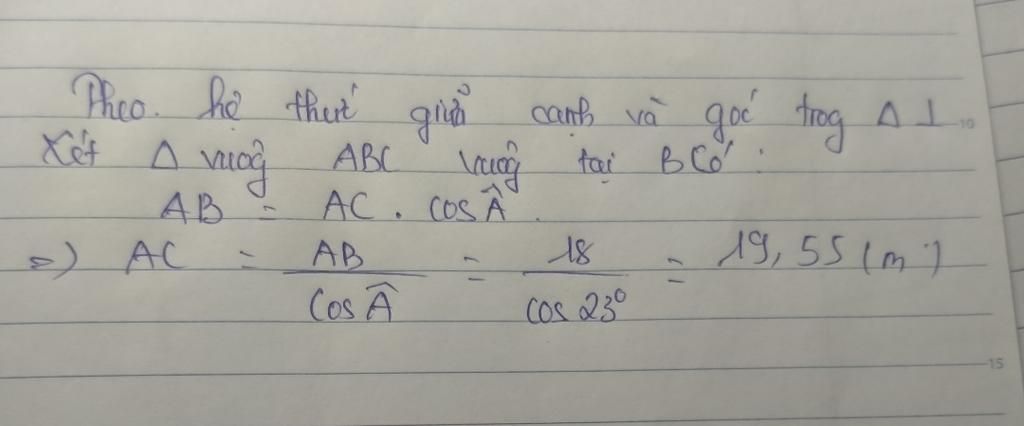 Theo. hệ thức giữa cạnh và góc trog Δ ⊥ 10
Xét Δ vuôg ABC vuôg tại B Có :
AB = AC . cos Â.
=) AC = AB / Cos Â = 18 / cos 23° = 19,55 (m)
15